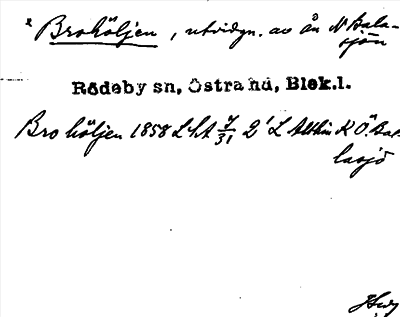 Broköljen, utvidgn. av ån N Bala-
sjön
Rödeby sn, Östra hd, Blek.l.
Broköljen 1858 LSA 7/31 2' L K Ö. Ba-
lasjö